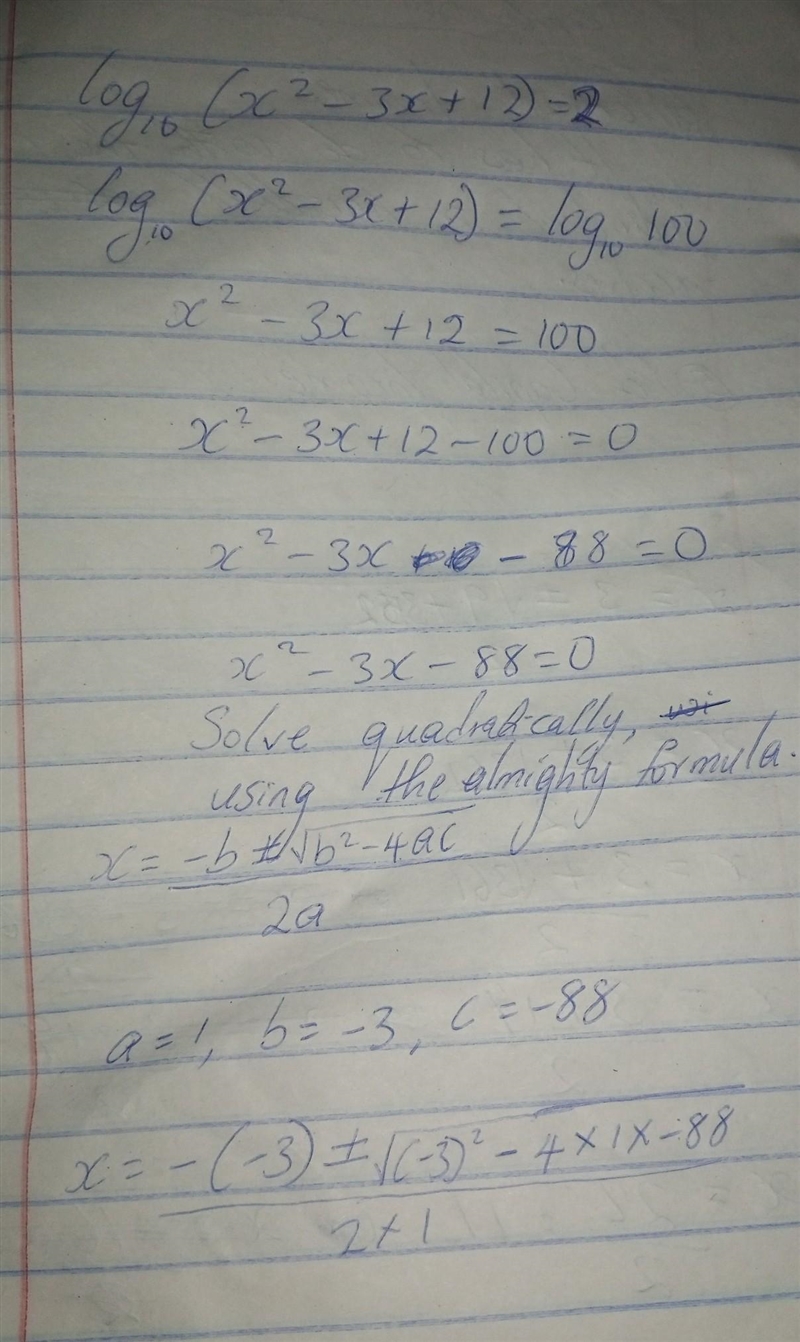 log₁₀ (x² - 3x + 12) = 2
log₁₀ (x² - 3x + 12) = log₁₀ 100
x² - 3x + 12 = 100
x² - 3x + 12 - 100 = 0
x² - 3x - 88 = 0
x² - 3x - 88 = 0
Solve quadratically,
using the almighty formula.
x = -b ± √b² - 4ac
2a
a = 1, b = -3, c = -88
x = -(-3) ± √(-3)² - 4 × 1 × -88
2 × 1